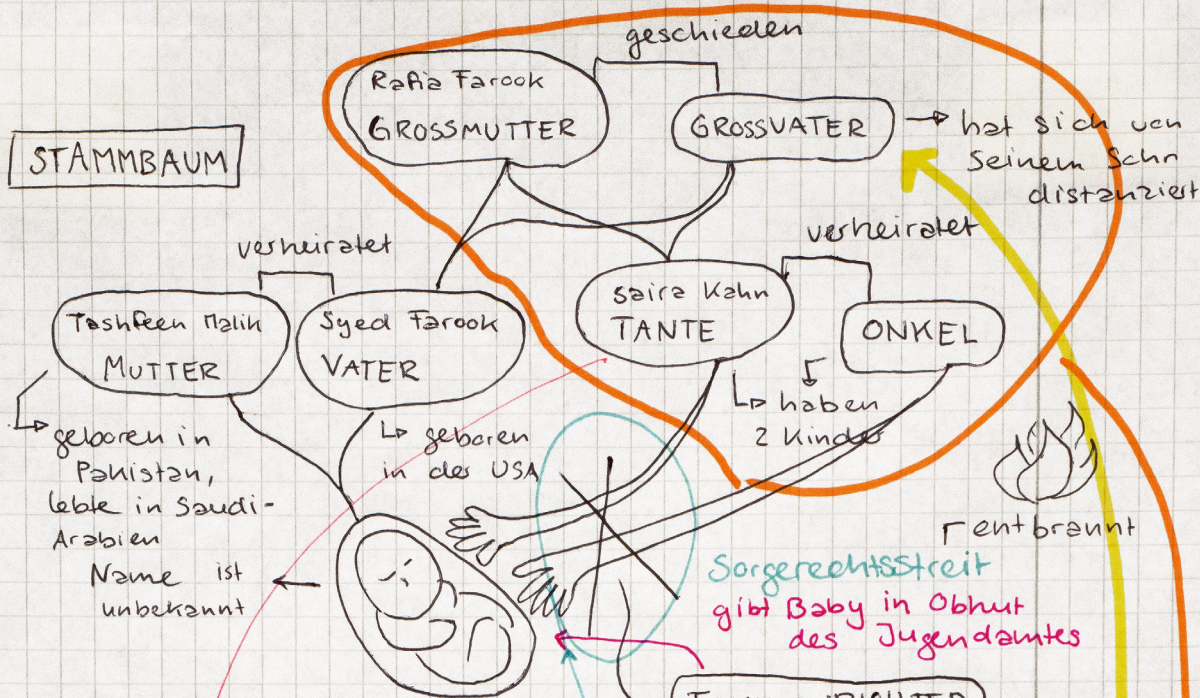 geschieden
Rafia Farook
GROSSMUTTER
GROSSVATER
hat sich von
seinem Sohn
distanziert
STAMMBAUM
verheiratet
verheiratet
Tashfeen Malik
MUTTER
Syed Farook
VATER
Saira Kahn
TANTE
ONKEL
geboren in
Pakistan,
lebte in Saudi-
Arabien
geboren
in der USA
haben
2 Kinder
entbrannt
Name ist
unbekannt
Sorgerechtsstreit
gibt Baby in Obhut
des Jugendamtes